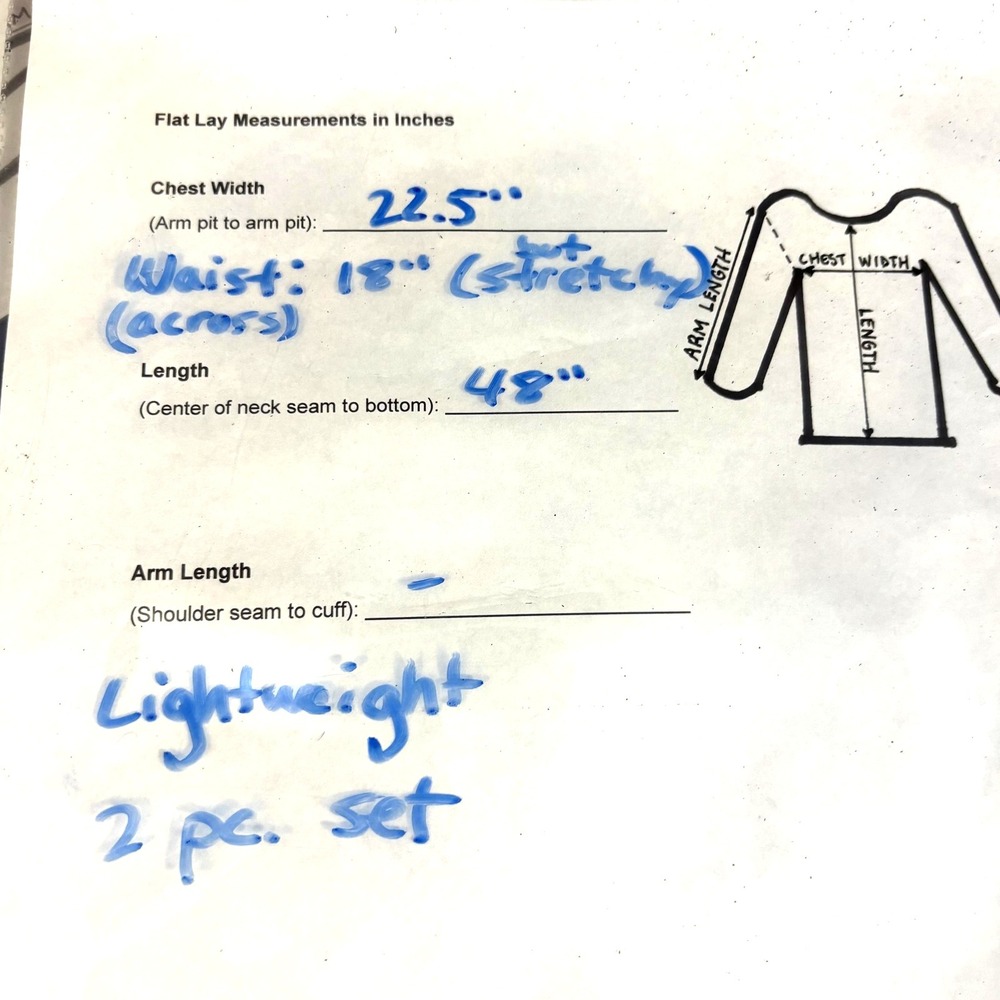 Flat Lay Measurements in Inches
Chest Width
(Arm pit to arm pit): 22.5"
Waist: 18" (but stretchy)
(across)
Length
(Center of neck seam to bottom): 48"
Arm Length
(Shoulder seam to cuff): -
Lightweight
2 pc. set
ARM LENGTH
CHEST WIDTH
LENGTH
M